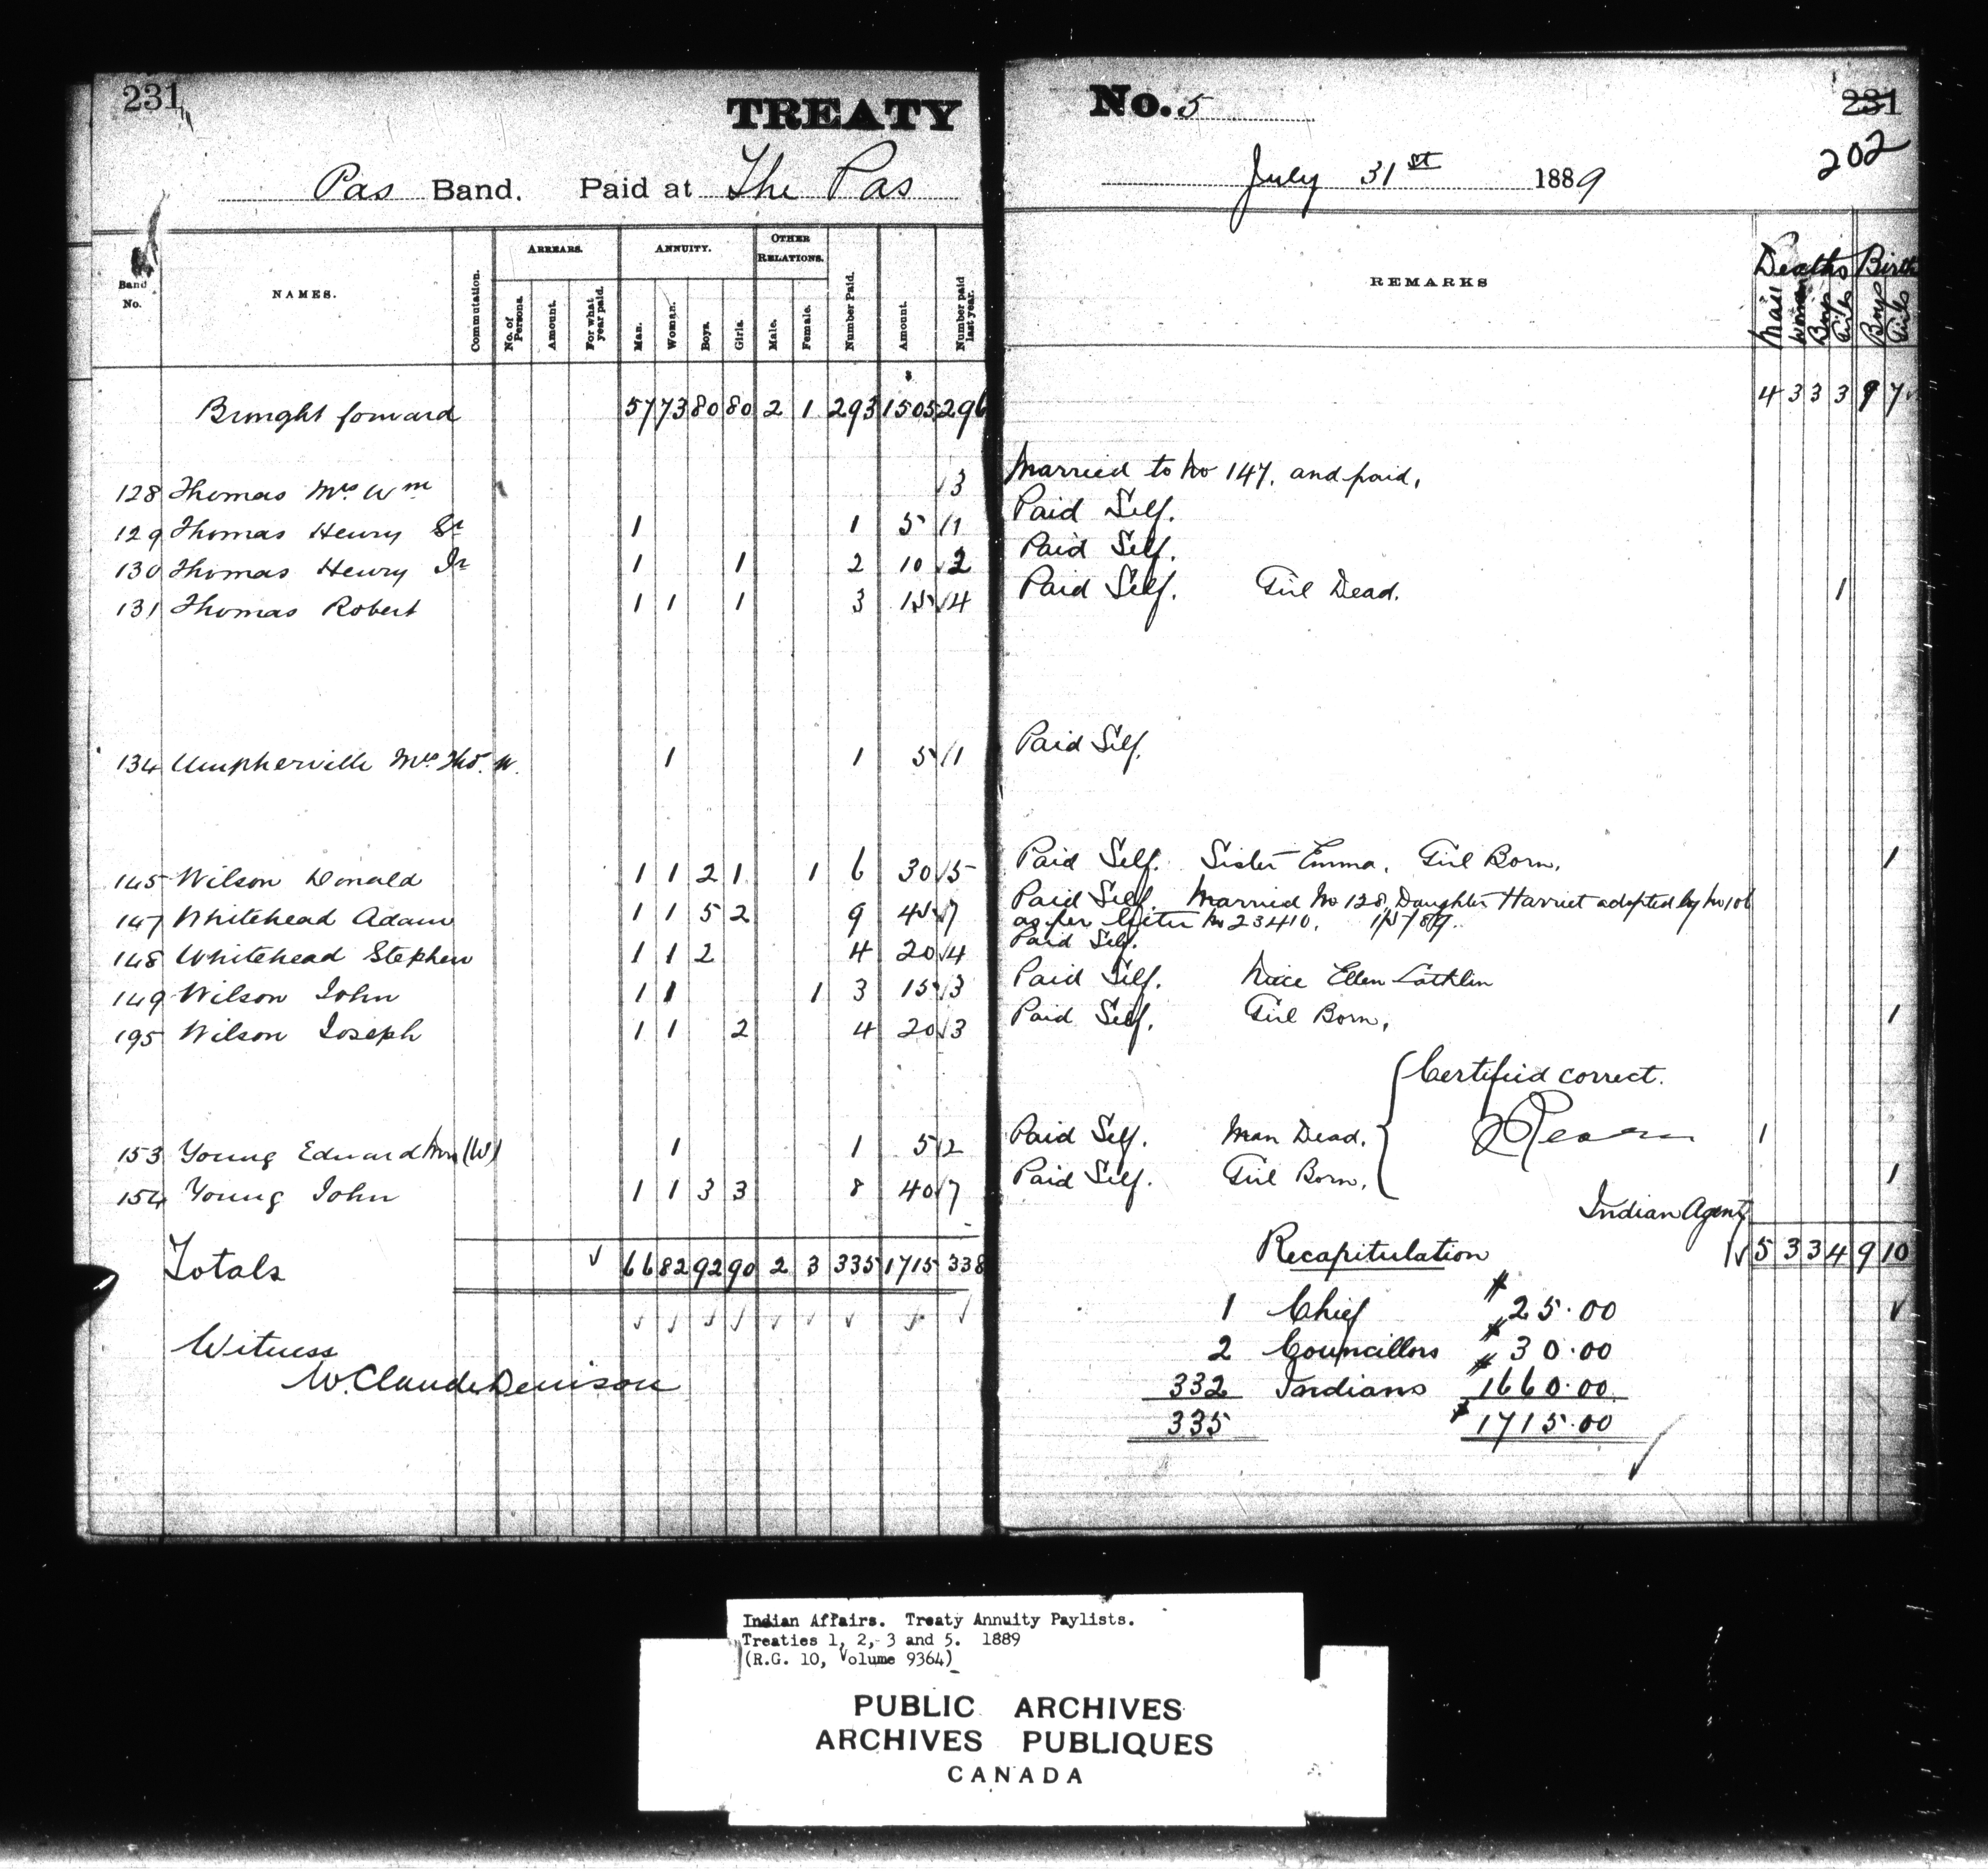 231 TREATY No. 5 231
202
Pas Band. Paid at The Pas July 31st 1889
Band No. NAMES. Commutation. ARREARS. No. of Persons. Amount. For what year paid. ANNUITY. Man. Woman. Boys. Girls. OTHER RELATIONS. Male. Female. Number Paid. Amount. Number paid last year. REMARKS Deaths Men Women Boys Girls Births Boys Girls
Brought forward 57 73 80 80 2 1 293 1505 296 4 3 3 3 9 7
128 Thomas Mrs Wm 3 Married to No 147. and paid.
129 Thomas Henry Sr 1 1 5 1 Paid Self.
130 Thomas Henry Jr 1 1 2 10 2 Paid Self.
131 Thomas Robert 1 1 1 3 15 4 Paid Self. Girl Dead. 1
134 Umpherville Mrs Thos. W. 1 1 5 1 Paid Self.
145 Wilson Donald 1 1 2 1 1 6 30 5 Paid Self. Sister Emma. Girl Born. 1
147 Whitehead Adam 1 1 5 2 9 45 7 Paid Self. Married No 128, Daughter Harriet adopted by No 106
as per letter No 23410. 1/5/89.
148 Whitehead Stephen 1 1 2 4 20 4 Paid Self.
149 Wilson John 1 1 1 3 15 3 Paid Self. Niece Ellen Lathlin
195 Wilson Joseph 1 1 2 4 20 3 Paid Self. Girl Born. 1
Certified correct.
153 Young Edward Mrs (W) 1 1 5 2 Paid Self. Man Dead. 1
154 Young John 1 1 3 3 8 40 7 Paid Self. Girl Born. 1
Indian Agent
Totals 66 82 92 90 2 3 335 1715 338 Recapitulation 5 3 3 4 9 10
1 Chief $25.00
Witness 2 Councillors $30.00
W. Claude Denison 332 Indians $1660.00
335 $1715.00
Indian Affairs. Treaty Annuity Paylists.
Treaties 1, 2, 3 and 5. 1889
(R.G. 10, Volume 9364)
PUBLIC ARCHIVES
ARCHIVES PUBLIQUES
CANADA